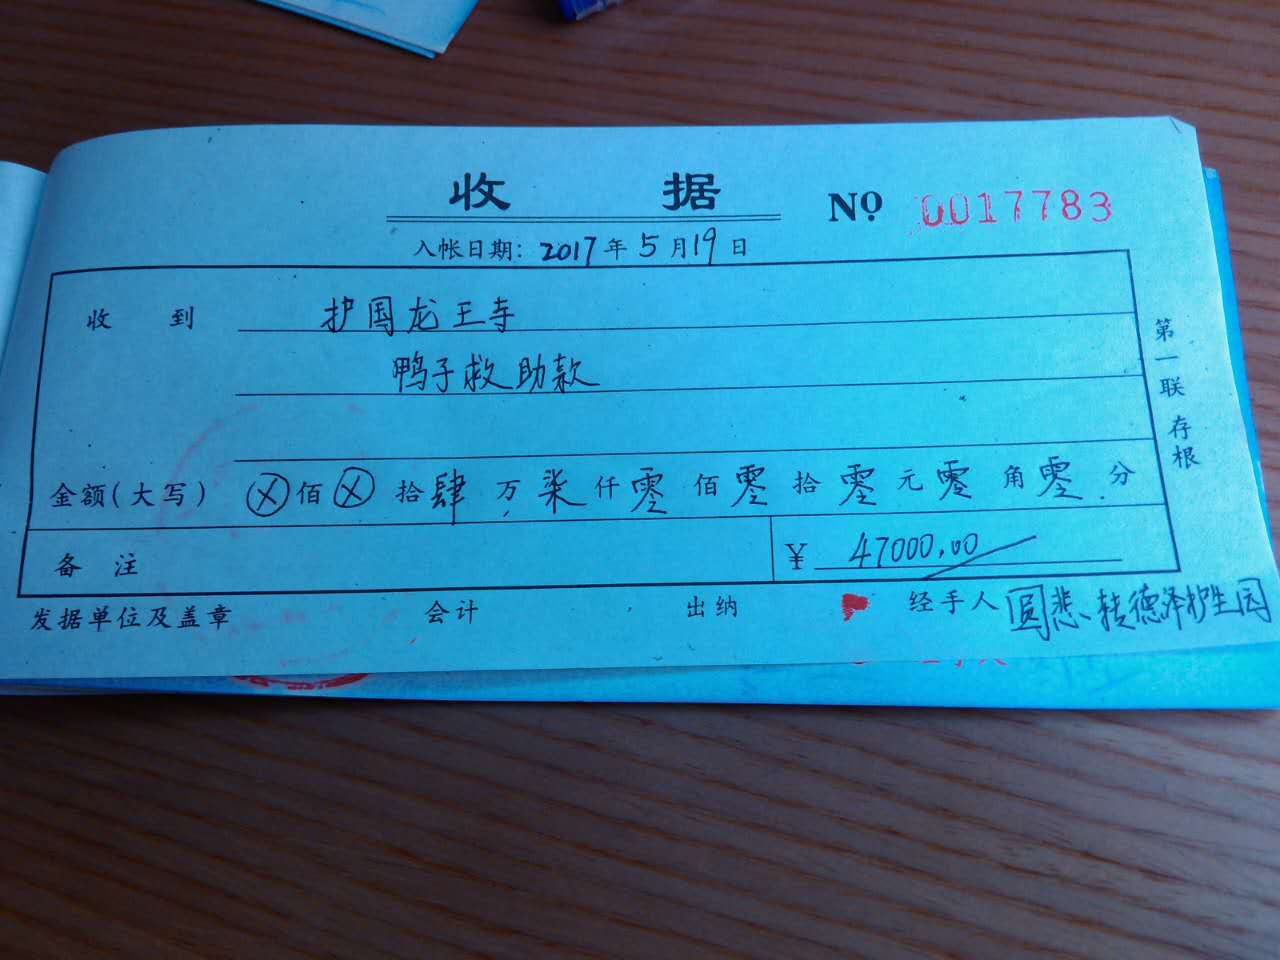 收 据 No 0017783
入帐日期: 2017年5月19日
收 到 护国龙王寺
鸭子救助款
金额(大写) ⓧ佰ⓧ拾肆万柒仟零佰零拾零元零角零分
备 注 ¥ 47000.00
发据单位及盖章 会计 出纳 经手人 圆悲、转德泽护生园
第一联 存根